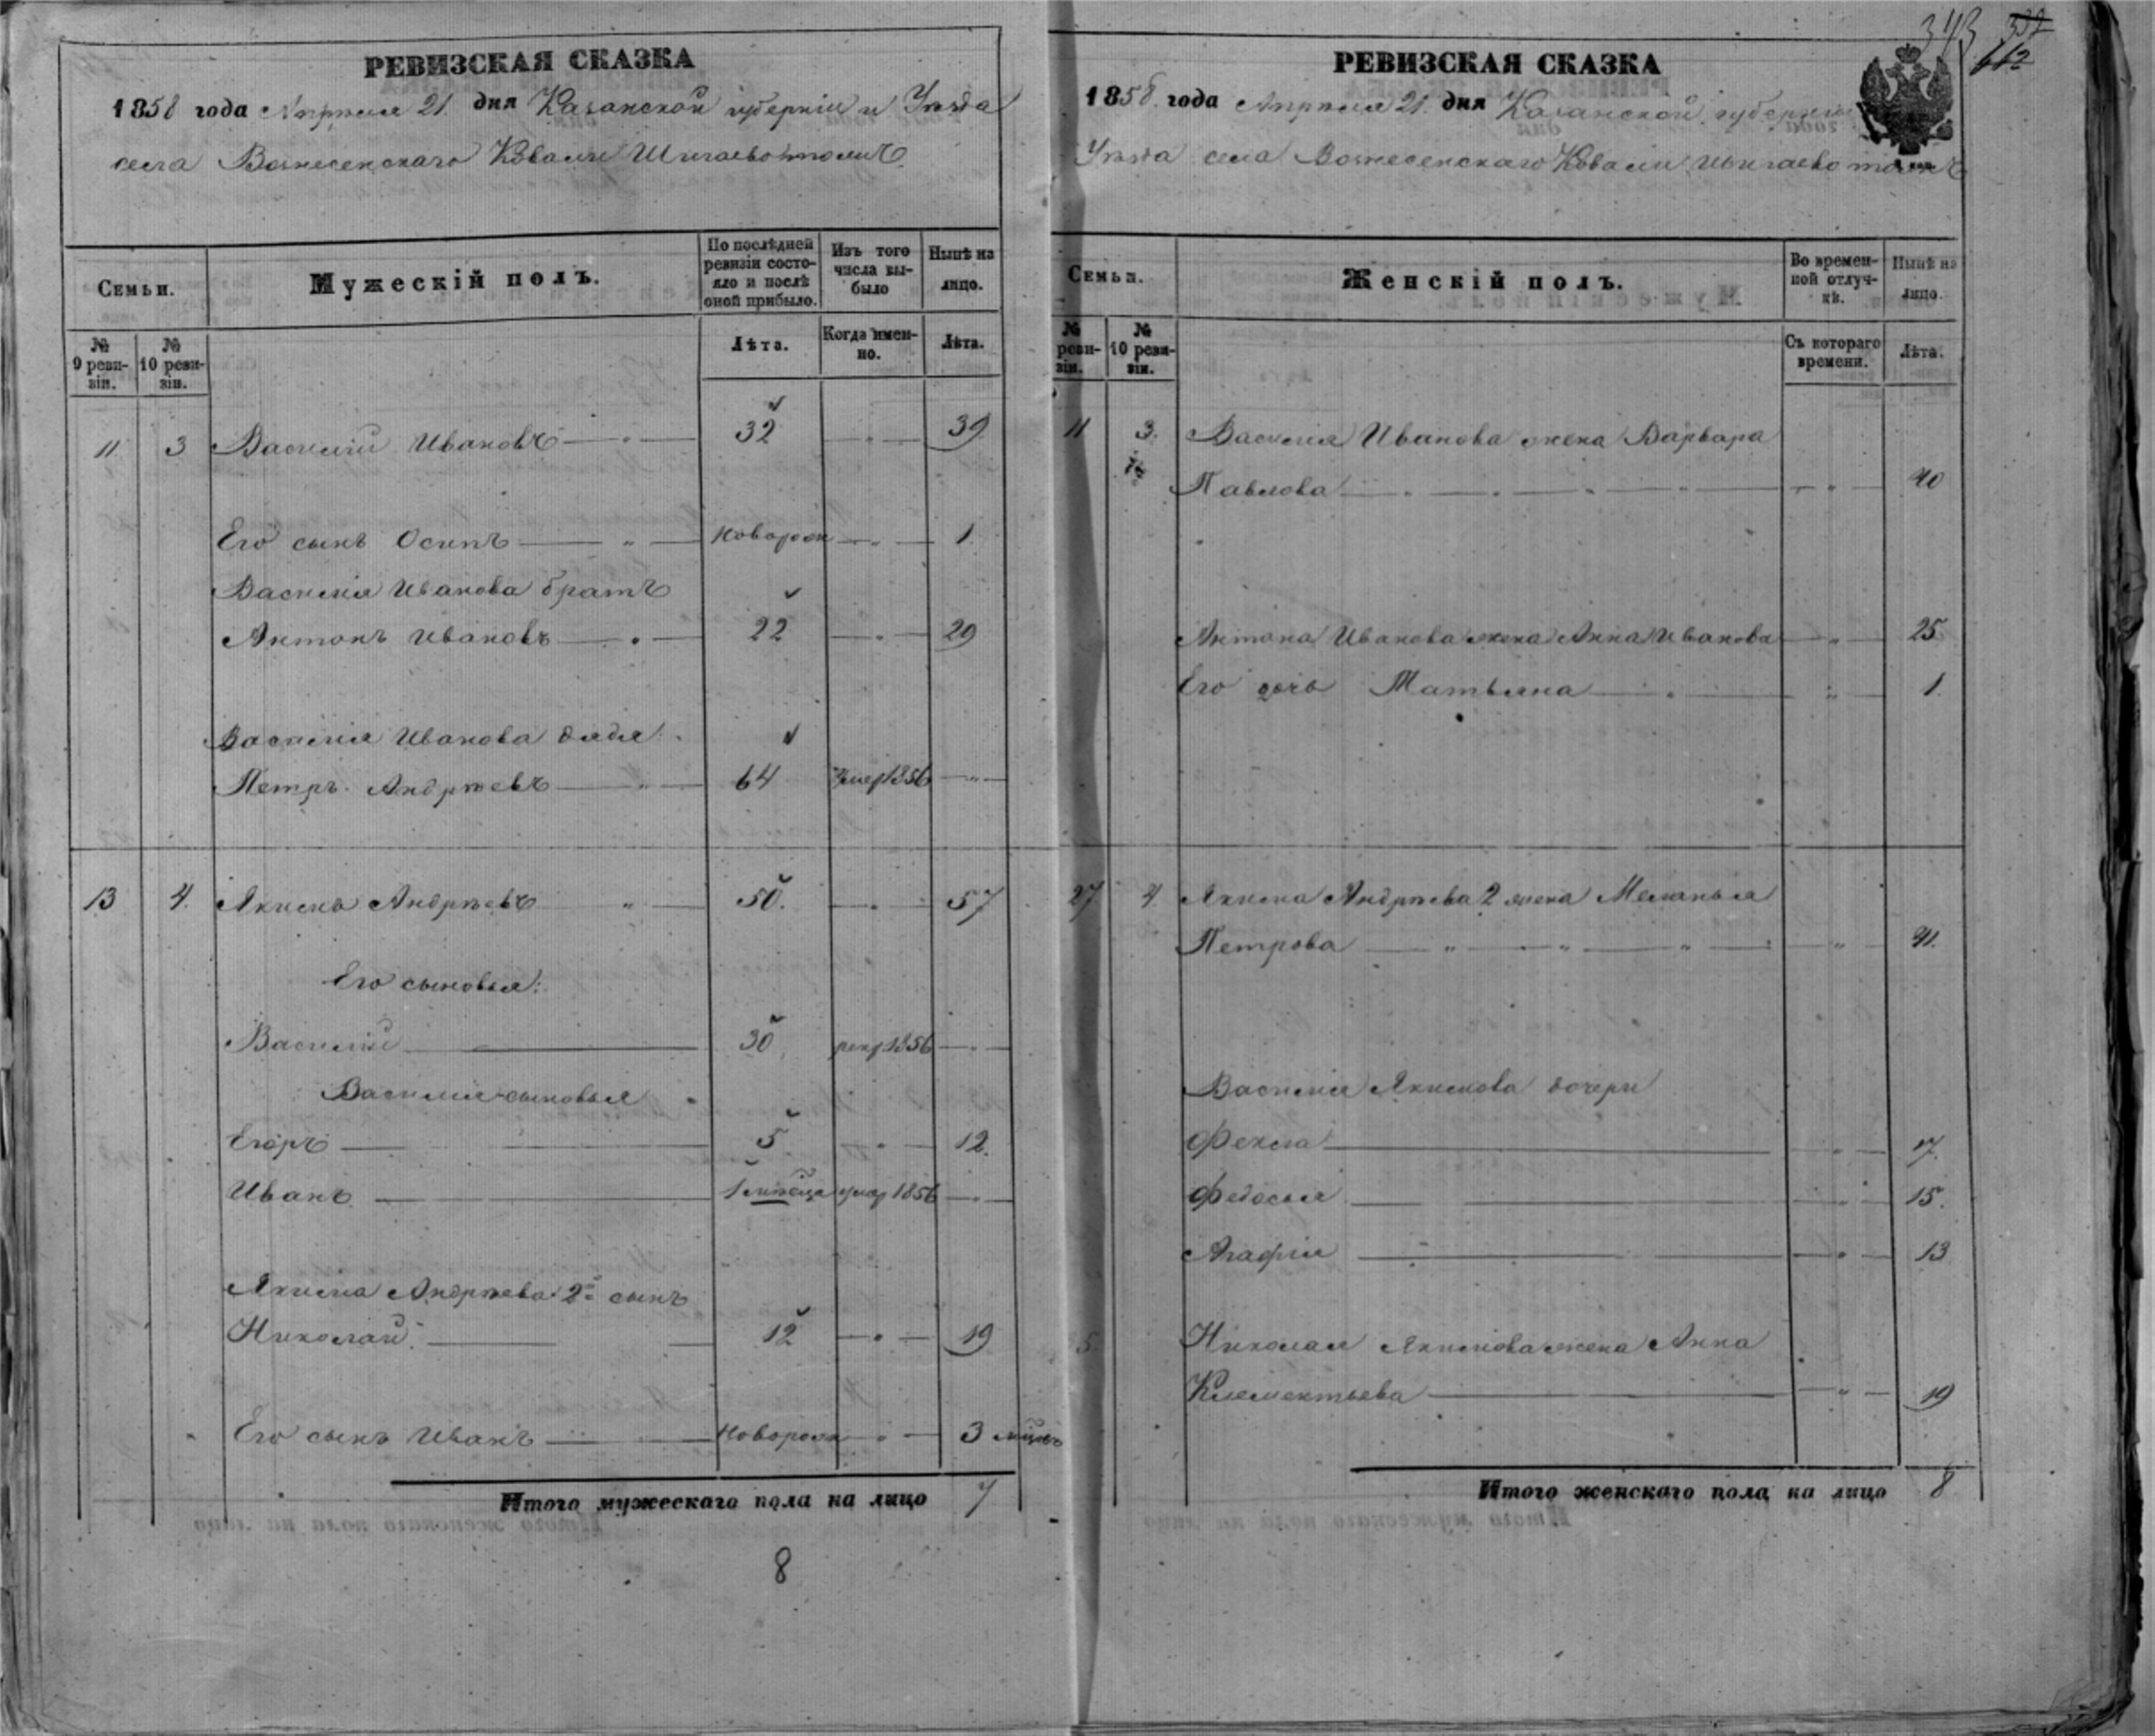 РЕВИЗСКАЯ СКАЗКА
1858 года Апреля 21. дня Казанской губерніи и Уѣзда
села Вознесенскаго Ковали Шигаево тожъ
Семьи.
Мужескій полъ.
По послѣдней ревизіи состояло и послѣ оной прибыло.
Изъ того числа выбыло
Нынѣ на лицо.
№ 9 ревизіи.
№ 10 ревизіи.
Лѣта.
Когда именно.
Лѣта.
11 3 Василій Ивановъ — " — 32 — " — 39
Его сынъ Осипъ — " — новорож — " — 1.
Василія Иванова братъ
Антонъ Ивановъ — " — 22 — " — 29
Василія Иванова дядя
Петръ Андрѣевъ — " — 64 умер 1856 — " —
13 4. Якимъ Андрѣевъ " — 50. — " — 57
Его сыновья:
Василий — 30 рекр 1856 — " —
Василия сыновья
Егоръ — 5. — " — 12.
Иванъ — умер 1856 — " —
Якима Андрѣева 2й сынъ
Николай — 12 — " — 19
Его сынъ Иванъ — новорож — " — 3
Итого мужескаго пола на лицо 7
8
343 332
662
РЕВИЗСКАЯ СКАЗКА
1858. года Апреля 21. дня Казанской губерніи
Уѣзда села Вознесенскаго Ковали Шигаево тожъ
Семьи.
Женскій полъ.
Во временной отлучкѣ.
Нынѣ на лицо.
№ ревизіи.
№ 10 ревизіи.
Съ котораго времени.
Лѣта.
11 3. Василія Иванова жена Варвара
Павлова — " — " — " — " — 40
Антона Иванова жена Анна Иванова — " — 25
Его дочь Матьяна — " — " — 1.
27 4. Якима Андрѣева 2 жена Меланья
Петрова — " — " — " — " — 41.
Василія Якимова дочери
Фекла — " — 17.
Федосья — " — 15.
Агафія — " — 13
5. Николая Якимова жена Анна
Клементьева — " — 19
Итого женскаго пола на лицо 8